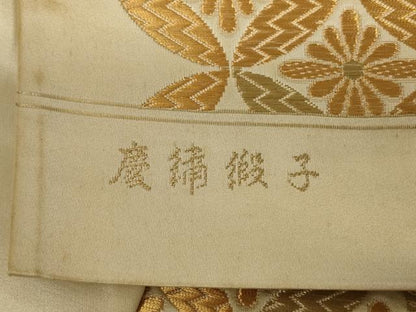 慶繍緞子